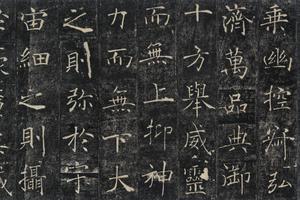 乘幽控寂弘
濟萬品典御
十方舉威靈
而無上抑神
力而無下大
之則弥於宇
宙細之則攝